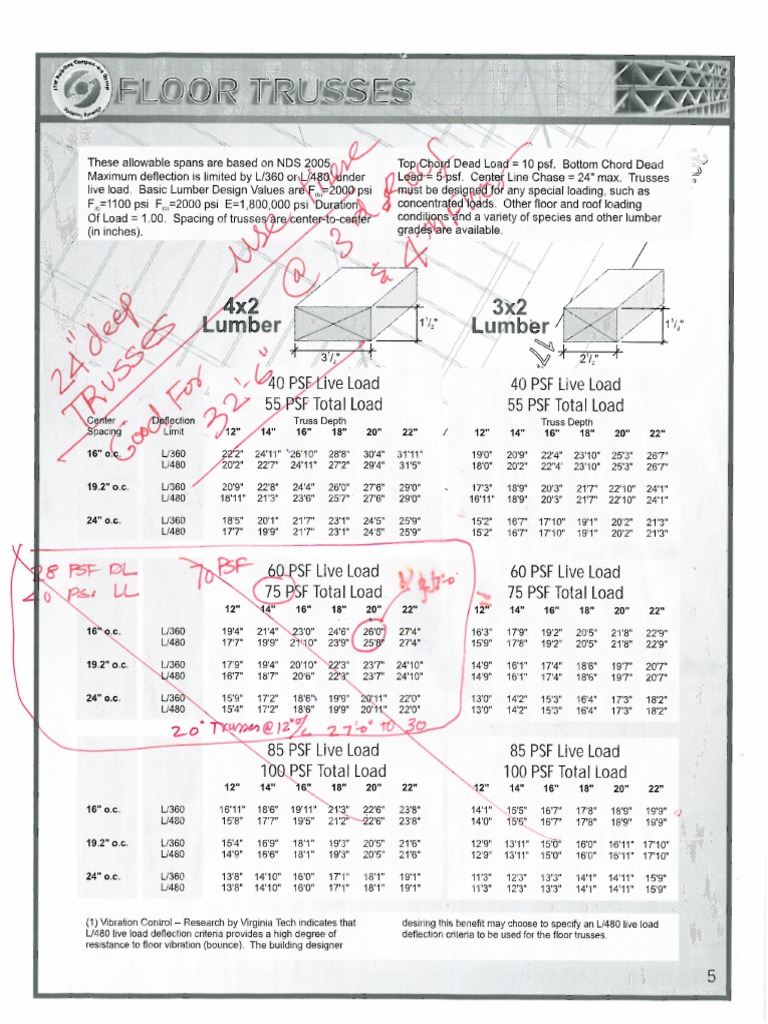 FLOOR TRUSSES
These allowable spans are based on NDS 2005.
Maximum deflection is limited by L/360 or L/480 under
live load. Basic Lumber Design Values are F(b)=2000 psi
F(t)=1100 psi F(c)=2000 psi E=1,800,000 psi Duration
Of Load = 1.00. Spacing of trusses are center-to-center
(in inches).
Top Chord Dead Load = 10 psf. Bottom Chord Dead
Load = 5 psf. Center Line Chase = 24" max. Trusses
must be designed for any special loading, such as
concentrated loads. Other floor and roof loading
conditions and a variety of species and other lumber
grades are available.
Use these
@ 3rd
& 4th Floors
24" deep
TRUSSES
Good For
32'-6"
4x2
Lumber
1½"
3½"
3x2
Lumber
1½"
2½"
40 PSF Live Load
55 PSF Total Load
Center Spacing Deflection Limit Truss Depth
12" 14" 16" 18" 20" 22"
16" o.c. L/360 22'2" 24'11" 26'10" 28'8" 30'4" 31'11"
L/480 20'2" 22'7" 24'11" 27'2" 29'4" 31'5"
19.2" o.c. L/360 20'9" 22'8" 24'4" 26'0" 27'6" 29'0"
L/480 18'11" 21'3" 23'6" 25'7" 27'6" 29'0"
24" o.c. L/360 18'5" 20'1" 21'7" 23'1" 24'5" 25'9"
L/480 17'7" 19'9" 21'7" 23'1" 24'5" 25'9"
40 PSF Live Load
55 PSF Total Load
Truss Depth
12" 14" 16" 18" 20" 22"
19'0" 20'9" 22'4" 23'10" 25'3" 26'7"
18'0" 20'2" 22'4" 23'10" 25'3" 26'7"
17'3" 18'9" 20'3" 21'7" 22'10" 24'1"
16'11" 18'9" 20'3" 21'7" 22'10" 24'1"
15'2" 16'7" 17'10" 19'1" 20'2" 21'3"
15'2" 16'7" 17'10" 19'1" 20'2" 21'3"
28 PSF DL
40 PSF LL
70 PSF
60 PSF Live Load
75 PSF Total Load
12" 14" 16" 18" 20" 22"
16" o.c. L/360 19'4" 21'4" 23'0" 24'6" 26'0" 27'4"
L/480 17'7" 19'9" 21'10" 23'9" 25'8" 27'4"
19.2" o.c. L/360 17'9" 19'4" 20'10" 22'3" 23'7" 24'10"
L/480 16'7" 18'7" 20'6" 22'3" 23'7" 24'10"
24" o.c. L/360 15'9" 17'2" 18'6" 19'9" 20'11" 22'0"
L/480 15'4" 17'2" 18'6" 19'9" 20'11" 22'0"
20" Trusses @ 12" o/c 27'-0" TO 30
60 PSF Live Load
75 PSF Total Load
12" 14" 16" 18" 20" 22"
16'3" 17'9" 19'2" 20'5" 21'8" 22'9"
15'9" 17'8" 19'2" 20'5" 21'8" 22'9"
14'9" 16'1" 17'4" 18'6" 19'7" 20'7"
14'9" 16'1" 17'4" 18'6" 19'7" 20'7"
13'0" 14'2" 15'3" 16'4" 17'3" 18'2"
13'0" 14'2" 15'3" 16'4" 17'3" 18'2"
85 PSF Live Load
100 PSF Total Load
12" 14" 16" 18" 20" 22"
16" o.c. L/360 16'11" 18'6" 19'11" 21'3" 22'6" 23'8"
L/480 15'8" 17'7" 19'5" 21'2" 22'6" 23'8"
19.2" o.c. L/360 15'4" 16'9" 18'1" 19'3" 20'5" 21'6"
L/480 14'9" 16'6" 18'1" 19'3" 20'5" 21'6"
24" o.c. L/360 13'8" 14'10" 16'0" 17'1" 18'1" 19'1"
L/480 13'8" 14'10" 16'0" 17'1" 18'1" 19'1"
85 PSF Live Load
100 PSF Total Load
12" 14" 16" 18" 20" 22"
14'1" 15'5" 16'7" 17'8" 18'9" 19'9"
14'0" 15'5" 16'7" 17'8" 18'9" 19'9"
12'9" 13'11" 15'0" 16'0" 16'11" 17'10"
12'9" 13'11" 15'0" 16'0" 16'11" 17'10"
11'3" 12'3" 13'3" 14'1" 14'11" 15'9"
11'3" 12'3" 13'3" 14'1" 14'11" 15'9"
(1) Vibration Control – Research by Virginia Tech indicates that
L/480 live load deflection criteria provides a high degree of
resistance to floor vibration (bounce). The building designer
desiring this benefit may choose to specify an L/480 live load
deflection criteria to be used for the floor trusses.
5